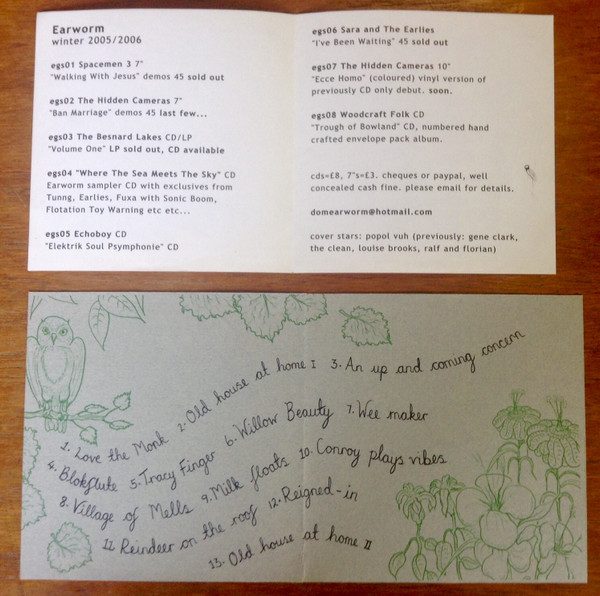 Earworm
winter 2005/2006
egs01 Spacemen 3 7"
"Walking With Jesus" demos 45 sold out
egs02 The Hidden Cameras 7"
"Ban Marriage" demos 45 last few...
egs03 The Besnard Lakes CD/LP
"Volume One" LP sold out, CD available
egs04 "Where The Sea Meets The Sky" CD
Earworm sampler CD with exclusives from
Tunng, Earlies, Fuxa with Sonic Boom,
Flotation Toy Warning etc etc...
egs05 Echoboy CD
"Elektrik Soul Psymphonie" CD
egs06 Sara and The Earlies
"I've Been Waiting" 45 sold out
egs07 The Hidden Cameras 10"
"Ecce Homo" (coloured) vinyl version of
previously CD only debut. soon.
egs08 Woodcraft Folk CD
"Trough of Bowland" CD, numbered hand
crafted envelope pack album.
cds=£8, 7"s=£3. cheques or paypal, well
concealed cash fine. please email for details.
domearworm@hotmail.com
cover stars: popol vuh (previously: gene clark,
the clean, louise brooks, ralf and florian)
1. Love the Monk 2. Old house at home I 3. An up and coming concern
4. Blokflute 5. Tracy Finger 6. Willow Beauty 7. Wee maker
8. Village of Mells 9. Milk floats 10. Conroy plays vibes
11. Reindeer on the roof 12. Reigned-in
13. Old house at home II